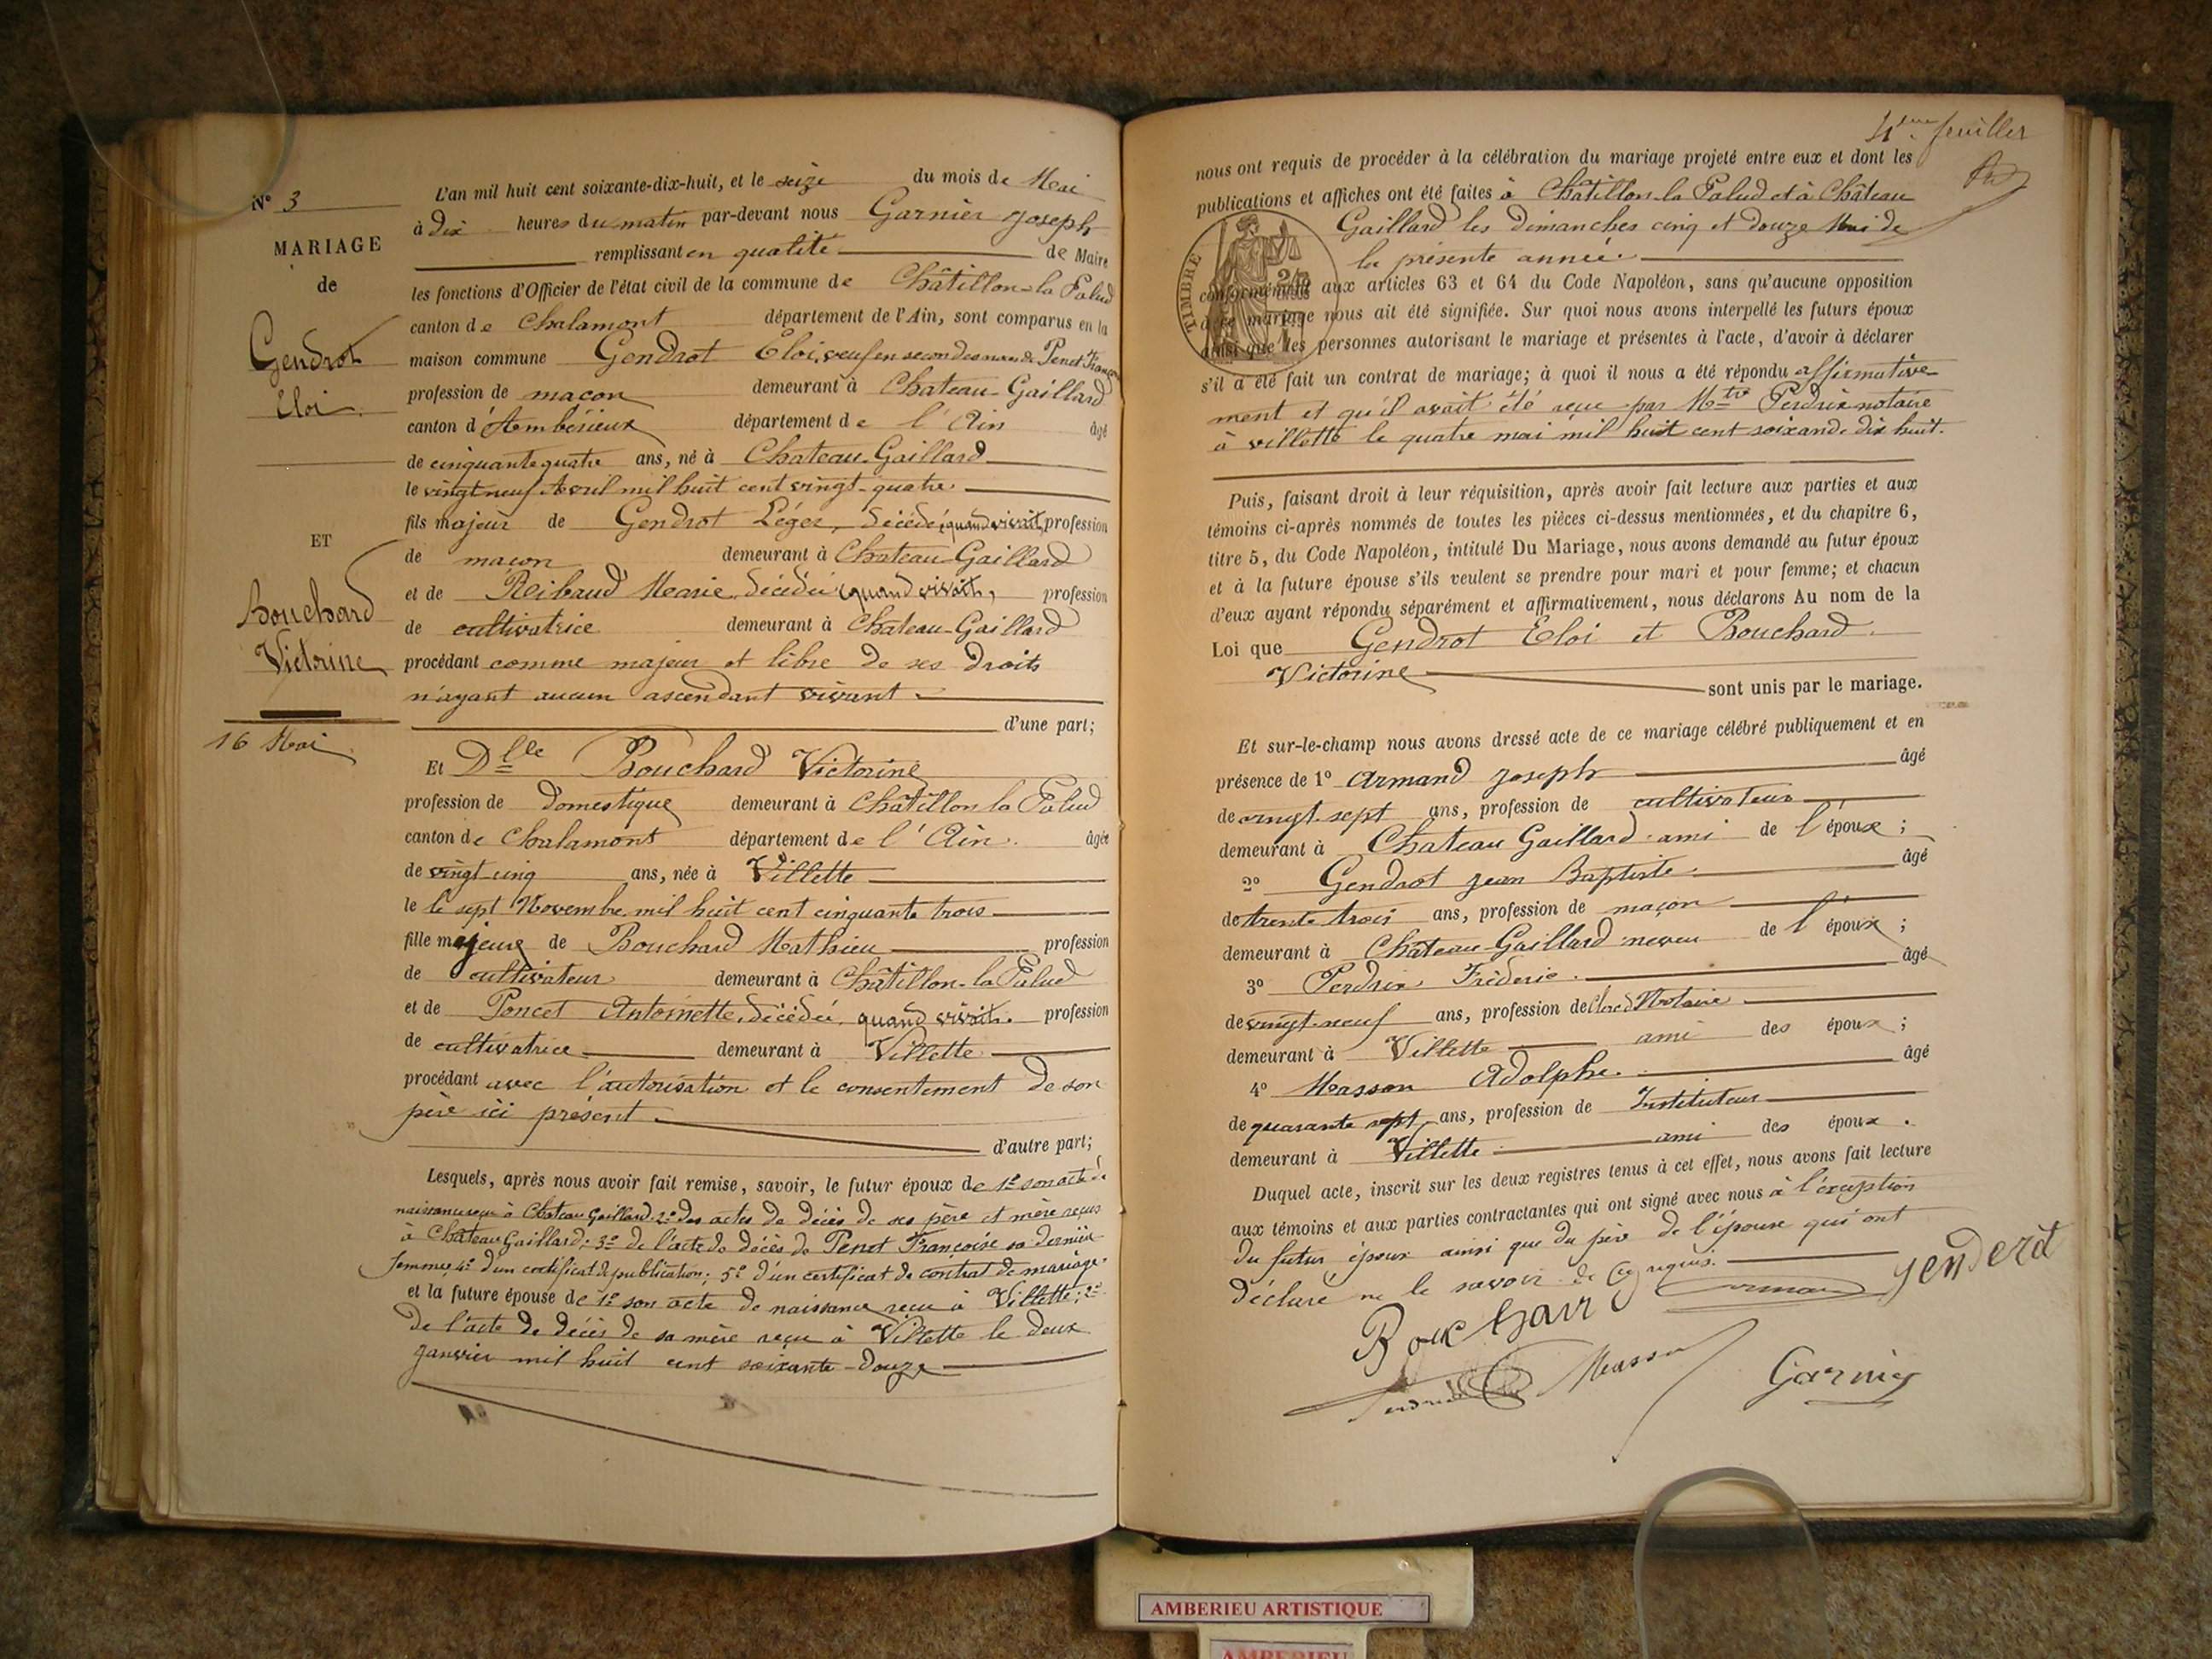 N° 3
MARIAGE
de
Gendrot
Eloi
ET
Bouchard
Victorine
16 Mai
L'an mil huit cent soixante-dix-huit, et le seize du mois de Mai
à dix heures du matin par-devant nous Garnier Joseph
remplissant en qualité de Maire
les fonctions d'Officier de l'état civil de la commune de Châtillon-la Palud
canton de Chalamont département de l'Ain, sont comparus en la
maison commune Gendrot Eloi, veuf en secondes noces de Penet Françoise
profession de maçon demeurant à Chateau-Gaillard
canton d'Ambérieux département de l'Ain âgé
de cinquante quatre ans, né à Chateau-Gaillard
le vingt neuf Avril mil huit cent vingt-quatre
fils majeur de Gendrot Léger, décédé, quand vivait, profession
de maçon demeurant à Chateau-Gaillard
et de Ribaud Marie décédée quand vivait, profession
de cultivatrice demeurant à Chateau-Gaillard
procédant comme majeur et libre de ses droits
n'ayant aucun ascendant vivant
d'une part;
Et Dlle Bouchard Victorine
profession de Domestique demeurant à Châtillon la Palud
canton de Chalamont département de l'Ain. âgée
de vingt cinq ans, née à Villette
le le sept Novembre mil huit cent cinquante trois
fille majeure de Bouchard Mathieu profession
de cultivateur demeurant à Châtillon-la Palud
et de Poncet Antoinette, décédée, quand vivait. profession
de cultivatrice demeurant à Villette
procédant avec l'autorisation et le consentement de son
père ici présent
d'autre part;
Lesquels, après nous avoir fait remise, savoir, le futur époux de 1° son acte de
naissance reçu à Chateau Gaillard. 2° des actes de décès de ses père et mère reçus
à Chateau Gaillard; 3° de l'acte de décès de Penet Françoise sa dernière
femme; 4° d'un certificat de publication; 5° d'un certificat de contrat de mariage.
et la future épouse de 1° son acte de naissance reçu à Villette; 2°
De l'acte de décès de sa mère reçu à Villette le deux
janvier mil huit cent soixante-douze
4eme feuillet
nous ont requis de procéder à la célébration du mariage projeté entre eux et dont les
publications et affiches ont été faites à Châtillon-la Palud et à Château
Gaillard les dimanches cinq et douze Mai de
la présente année
TIMBRE
conformément aux articles 63 et 64 du Code Napoléon, sans qu'aucune opposition
à ce mariage nous ait été signifiée. Sur quoi nous avons interpellé les futurs époux
ainsi que les personnes autorisant le mariage et présentes à l'acte, d'avoir à déclarer
s'il a été fait un contrat de mariage; à quoi il nous a été répondu affirmative
ment et qu'il avait été reçu par Mtre Perdrix notaire
à villette le quatre mai mil huit cent soixante dix huit.
Puis, faisant droit à leur réquisition, après avoir fait lecture aux parties et aux
témoins ci-après nommés de toutes les pièces ci-dessus mentionnées, et du chapitre 6,
titre 5, du Code Napoléon, intitulé Du Mariage, nous avons demandé au futur époux
et à la future épouse s'ils veulent se prendre pour mari et pour femme; et chacun
d'eux ayant répondu séparément et affirmativement, nous déclarons Au nom de la
Loi que Gendrot Eloi et Bouchard
Victorine sont unis par le mariage.
Et sur-le-champ nous avons dressé acte de ce mariage célébré publiquement et en
présence de 1° Armand Joseph âgé
de vingt-sept ans, profession de cultivateur
demeurant à Chateau Gaillard ami de l'époux;
2° Gendrot Jean Baptiste âgé
de trente trois ans, profession de maçon
demeurant à Château-Gaillard neveu de l'époux;
3° Perdrix Fréderic âgé
de vingt-neuf ans, profession de Clerc de Notaire
demeurant à Villette ami des époux;
4° Masson Adolphe. âgé
de quarante sept ans, profession de Instituteur
demeurant à Villette ami des époux.
Duquel acte, inscrit sur les deux registres tenus à cet effet, nous avons fait lecture
aux témoins et aux parties contractantes qui ont signé avec nous à l'exception
du futur époux ainsi que du père de l'épouse qui ont
déclaré ne le savoir de ce requis.
Bouchard Armand gendrot
Perdrix Masson Garnier
AMBERIEU ARTISTIQUE
AMBERIEU